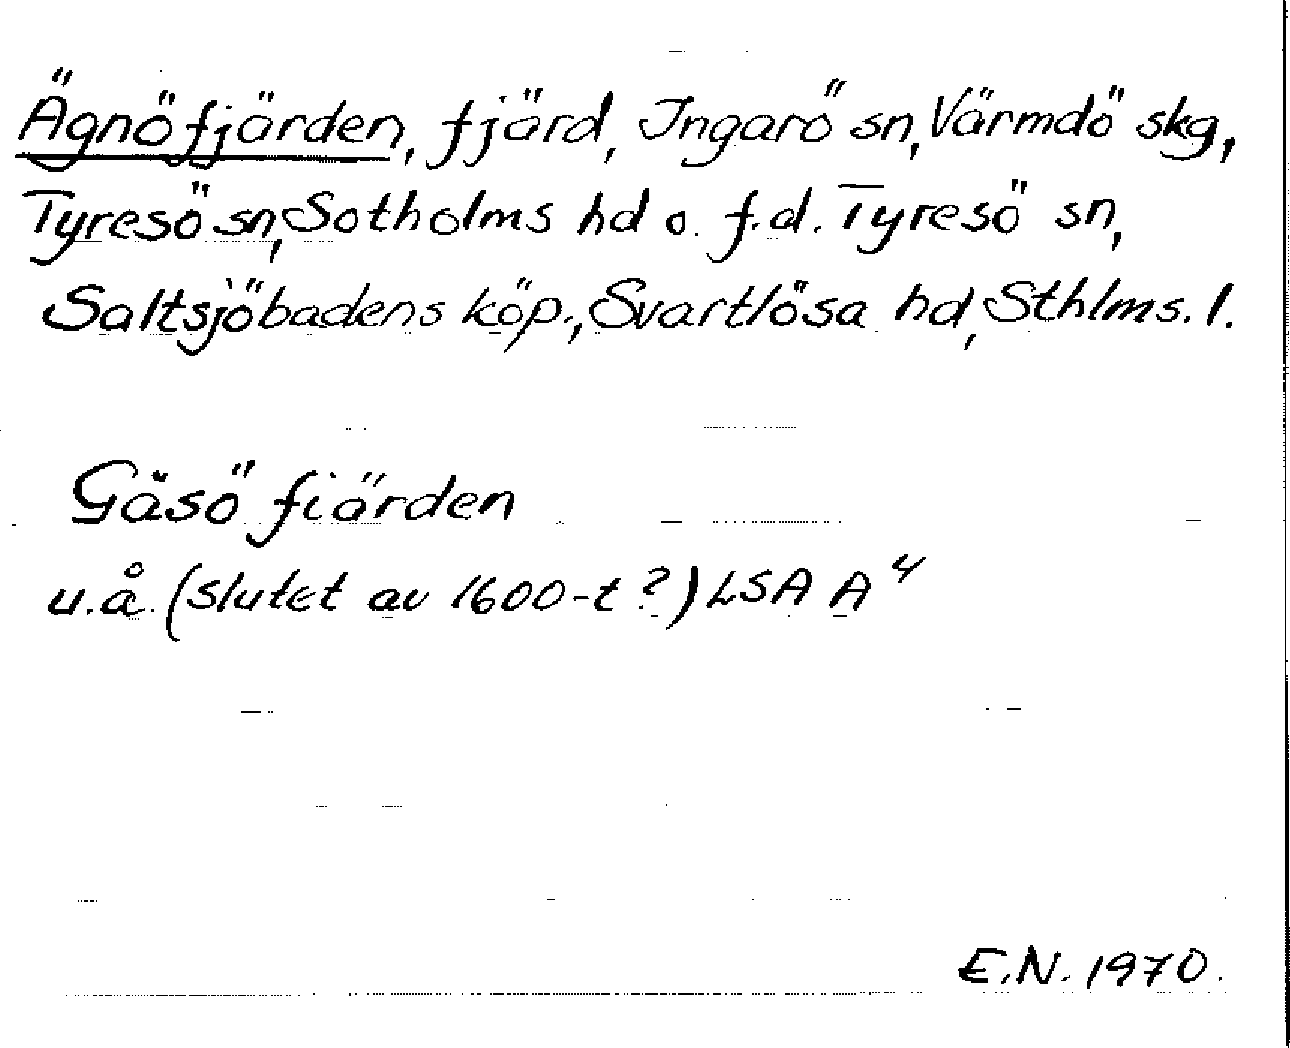 Ägnöfjärden, fjärd, Ingarö sn, Värmdö skg,
Tyresö sn, Sotholms hd o. f.d. Tyresö sn,
Saltsjöbadens köp., Svartlösa hd, Sthlms. l.
Gåsö fiärden
u.å. (slutet av 1600-t?) LSA A⁴
E.N. 1970.